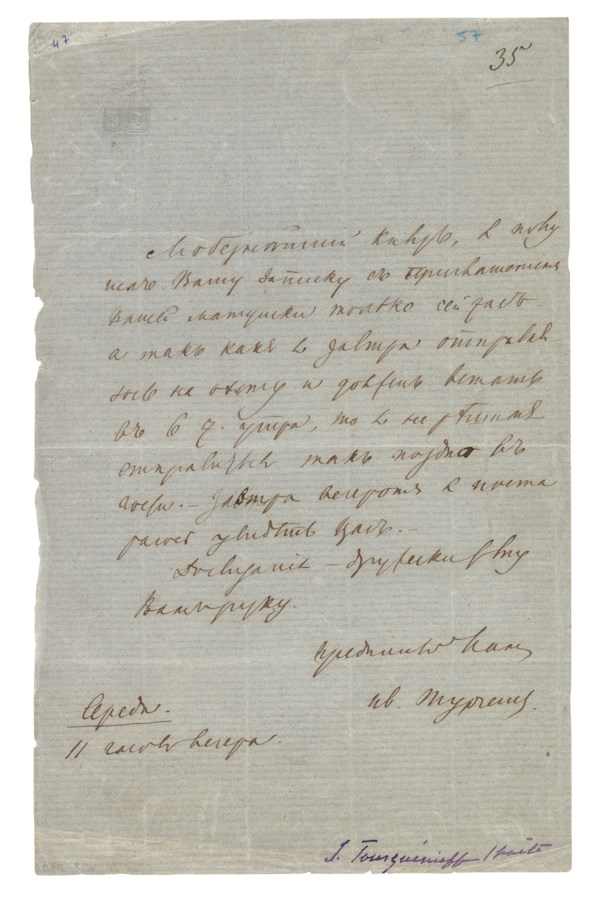 47
57
35
Любезнѣйший Князь, я полу
чилъ Вашу записку съ приглашениемъ
Вашей матушки только сейчасъ –
а такъ какъ я завтра отправля
юсь на охоту и долженъ встать
въ 6 ч. утра, то я не рѣшился
отправиться такъ поздно въ
гости. – Завтра вечеромъ я поста
раюсь увидѣть Васъ. –
До свиданiя – дружески жму
Вамъ руку.
преданный Вамъ
Ив. Тургенев.
Середа.
11 часовъ вечера.
J. Tourguénieff